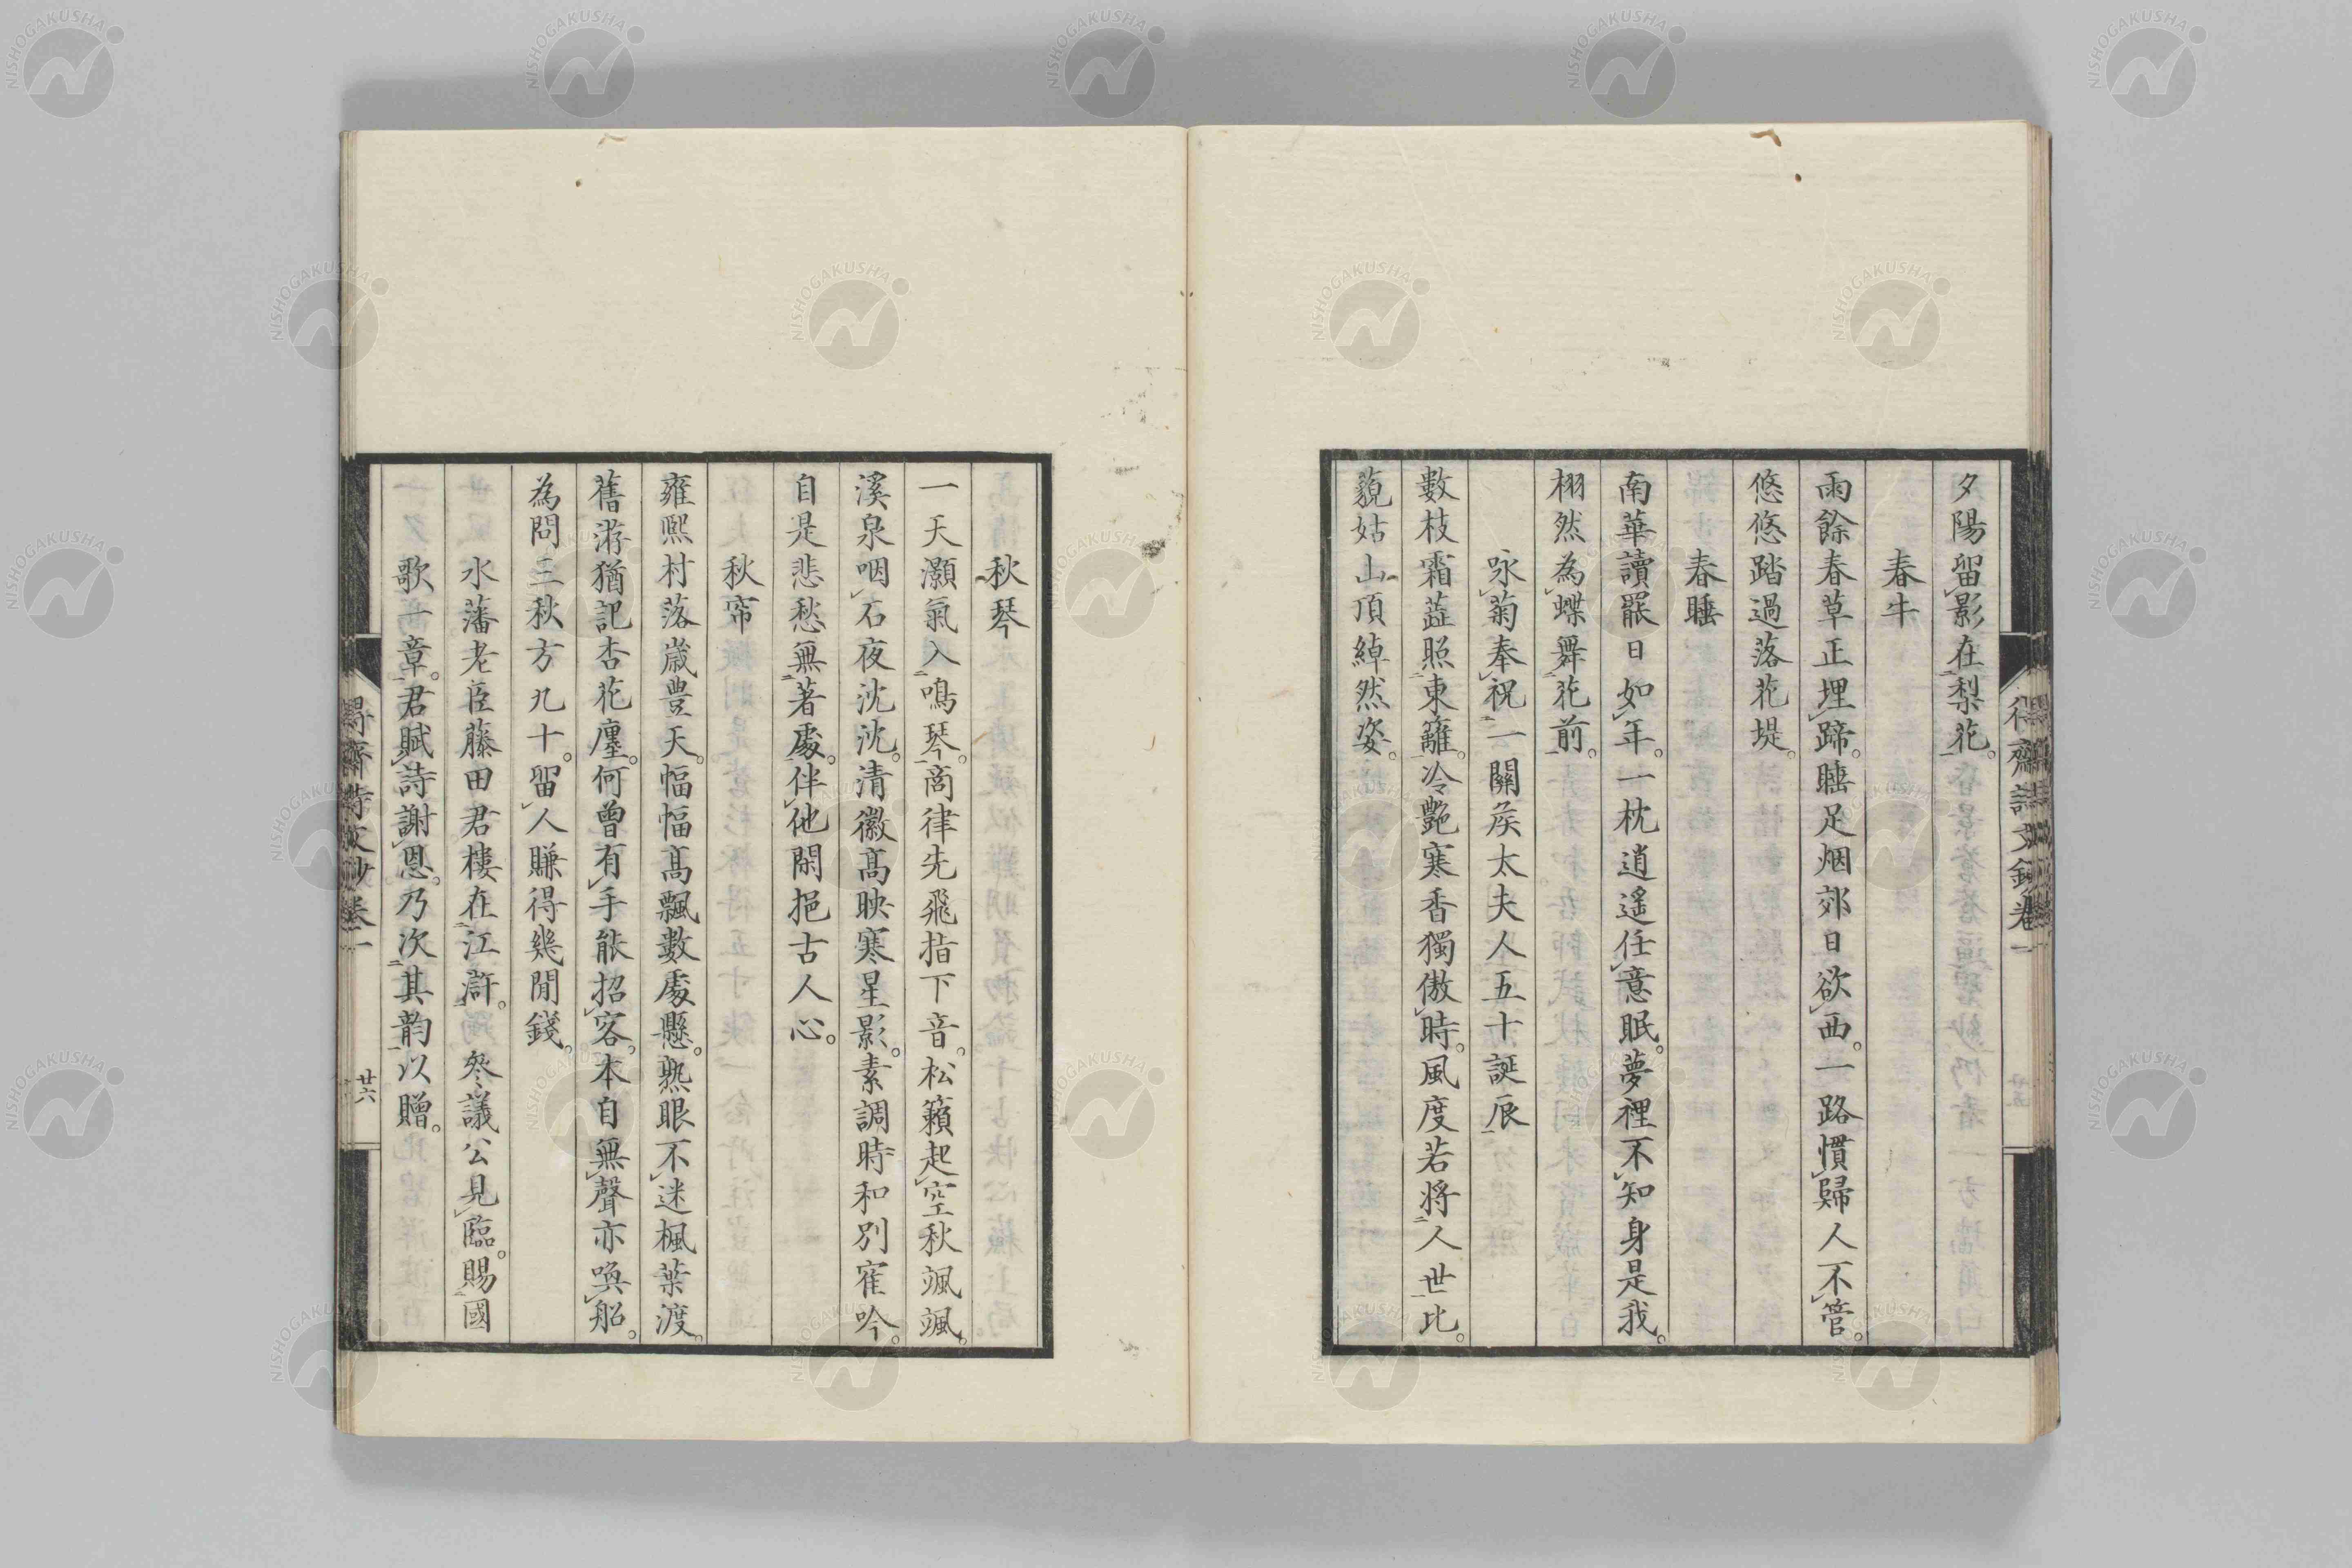 夕陽留影在梨花。
春牛
雨餘春草正埋蹄。睡足烟郊日欲西。一路慣歸人不管。
悠悠踏過落花堤。
春睡
南華讀罷日如年。一枕逍遙任意眠。夢裡不知身是我。
栩然為蝶舞花前。
咏菊奉祝關矦太夫人五十誕辰
數枝霜蕋照東籬。冷艷寒香獨傲時。風度若將人世比。
藐姑山頂綽然姿。
秋琴
一天灝氣入鳴琴。商律先飛指下音。松籟起空秋颯颯。
溪泉咽石夜沈沈。清徽高映寒星影。素調時和別寉吟。
自是悲愁無著處。伴他閑挹古人心。
秋帘
雍熙村落歲豊天。幅幅高飄數處懸。熟眼不迷楓葉渡。
舊游猶記杏花廛。何曾有手能招客。本自無聲亦喚船。
為問三秋方九十。留人賺得幾閒錢。
水藩老臣藤田君樓在江滸。 叅議公見臨。賜國
歌一章。君賦詩謝恩。乃次其韵以贈。
得齋詩文鈔卷一
廿六
NISHOGAKUSHA